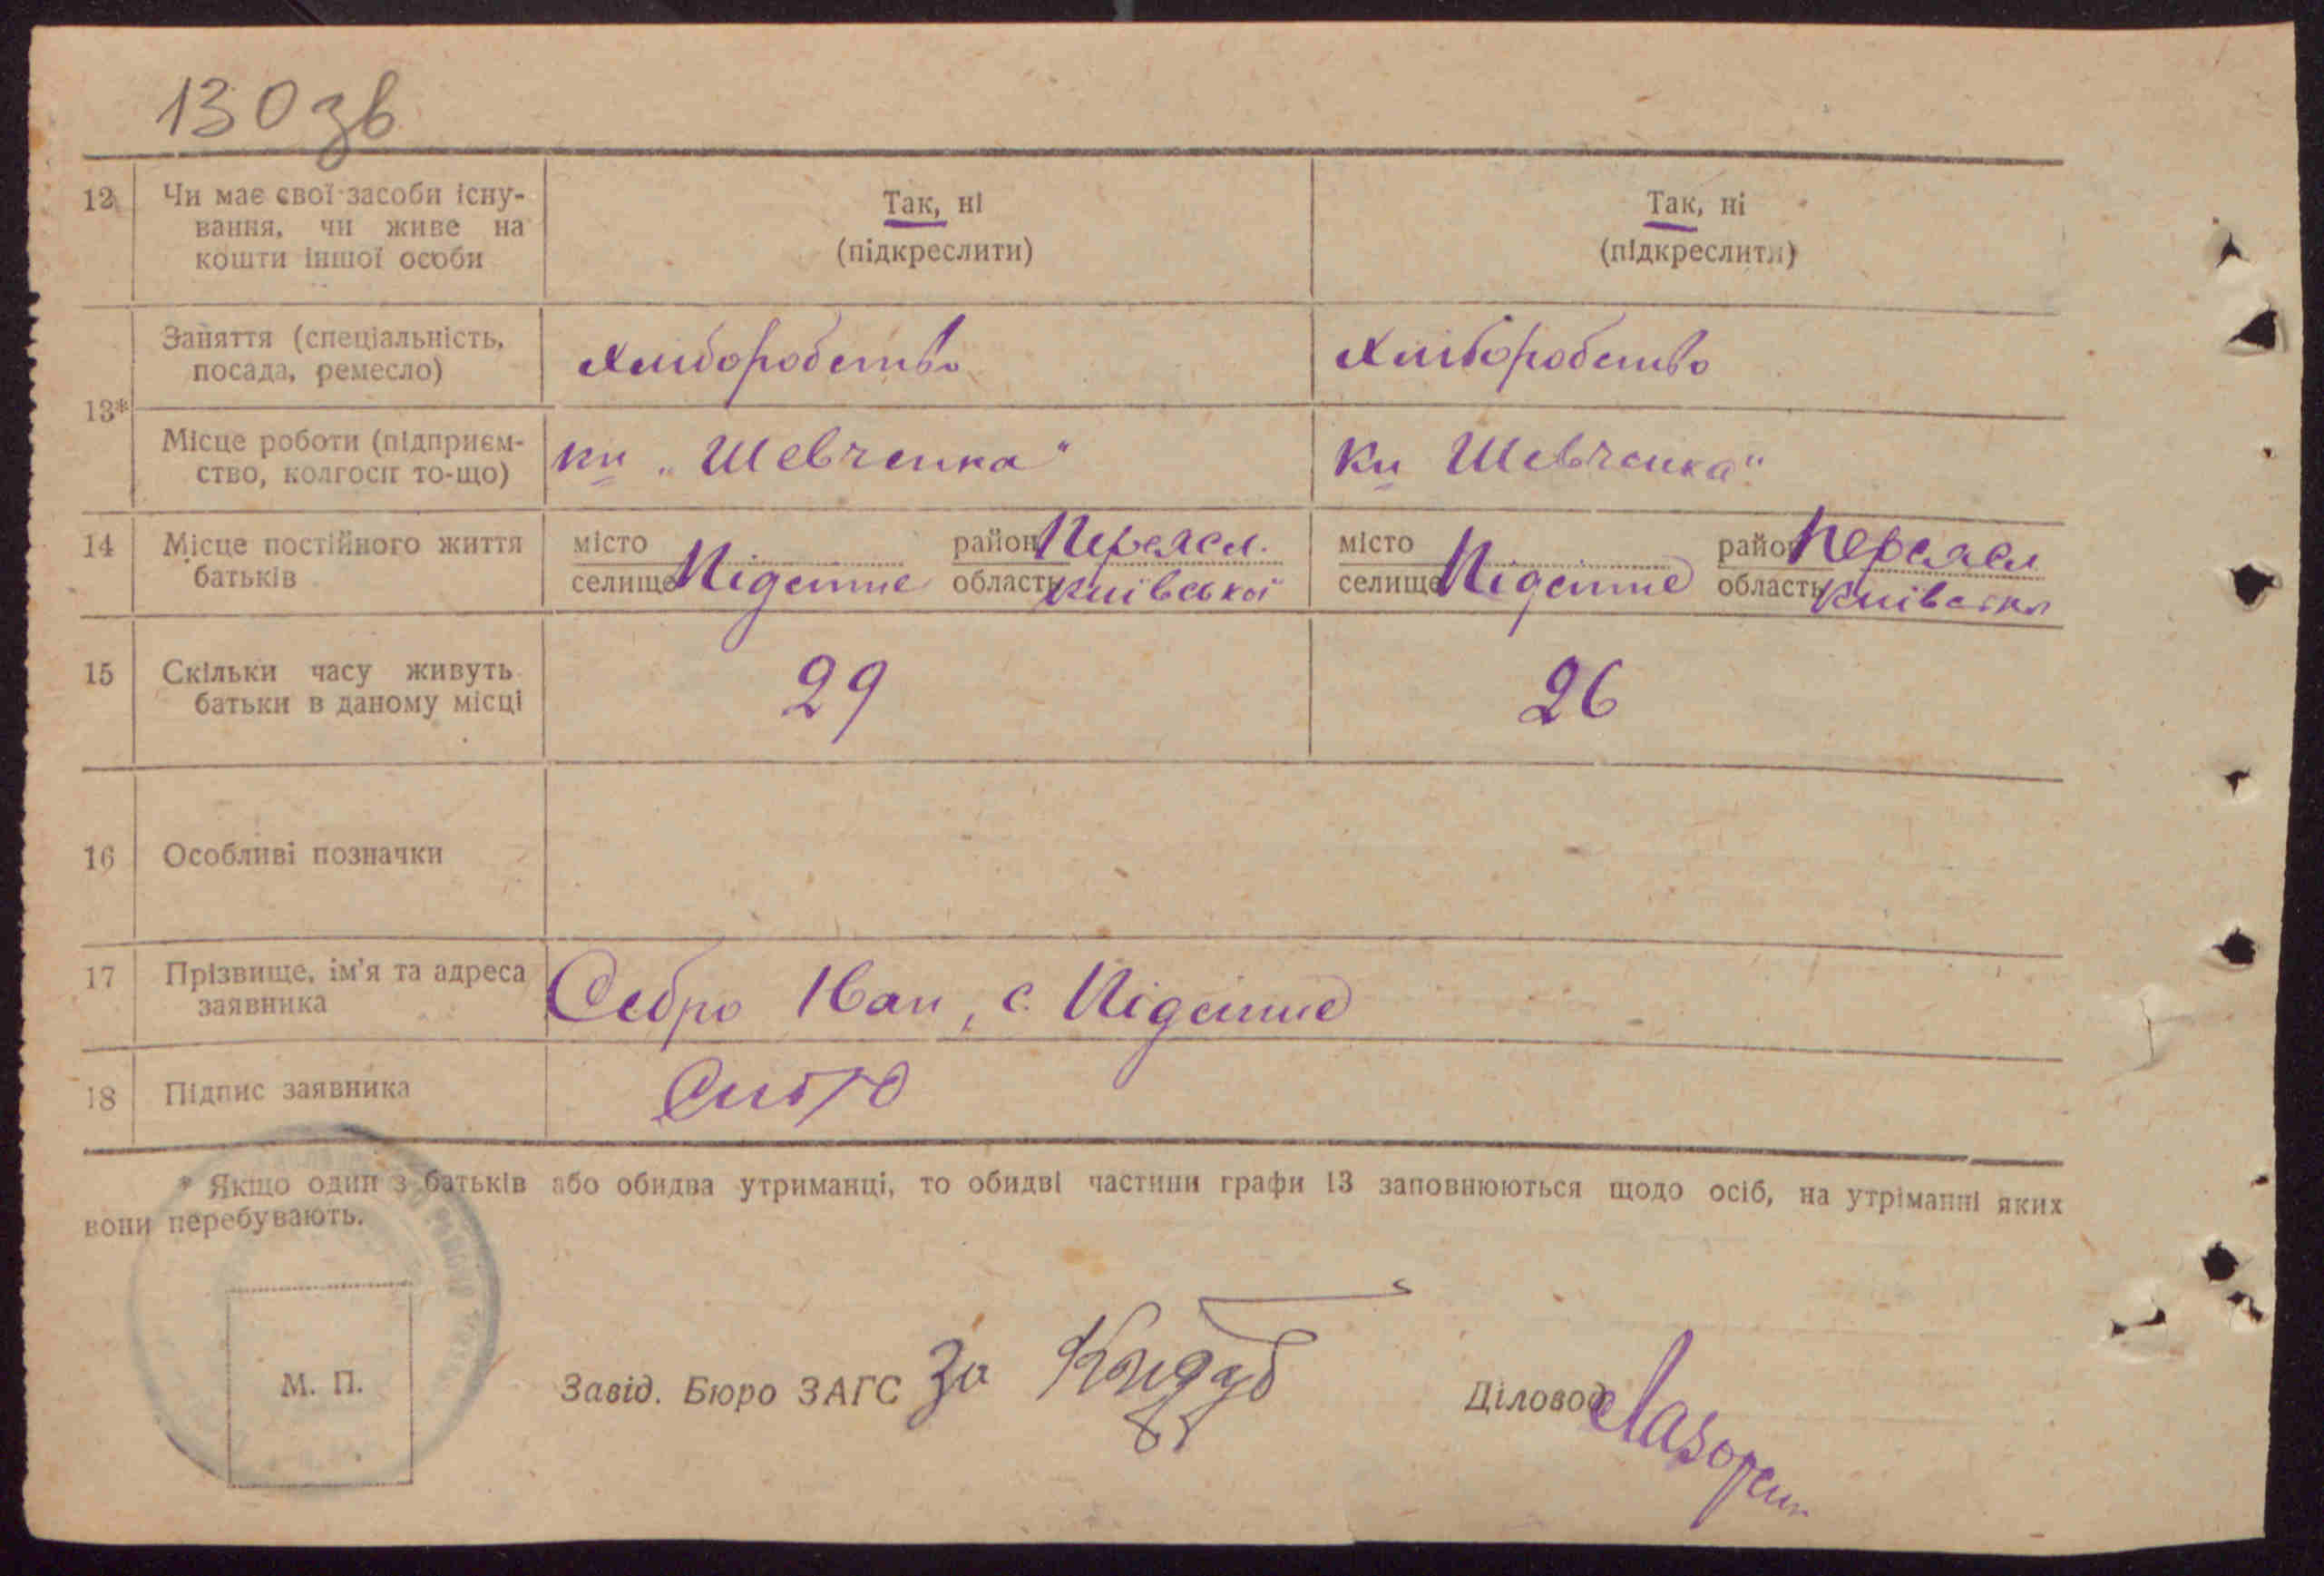 130 зв
12 Чи має свої засоби існу- Так, ні Так, ні
вання, чи живе на
кошти іншої особи (підкреслити) (підкреслити)
Заняття (спеціальність, Хліборобство Хліборобство
посада, ремесло)
13*
Місце роботи (підприєм- кп „Шевченка" кп Шевченка"
ство, колгосп то-що)
14 Місце постійного життя місто район Переясл. місто район Переясл
батьків селище Підсінне область Київської селище Підсінне область Київська
15 Скільки часу живуть 29 26
батьки в даному місці
16 Особливі позначки
17 Прізвище, ім'я та адреса Себро Іван, с. Підсінне
заявника
18 Підпис заявника
* Якщо один з батьків або обидва утриманці, то обидві частини графи 13 заповнюються щодо осіб, на утріманні яких
вони перебувають.
М. П.
Завід. Бюро ЗАГС За
Діловод Лазорен